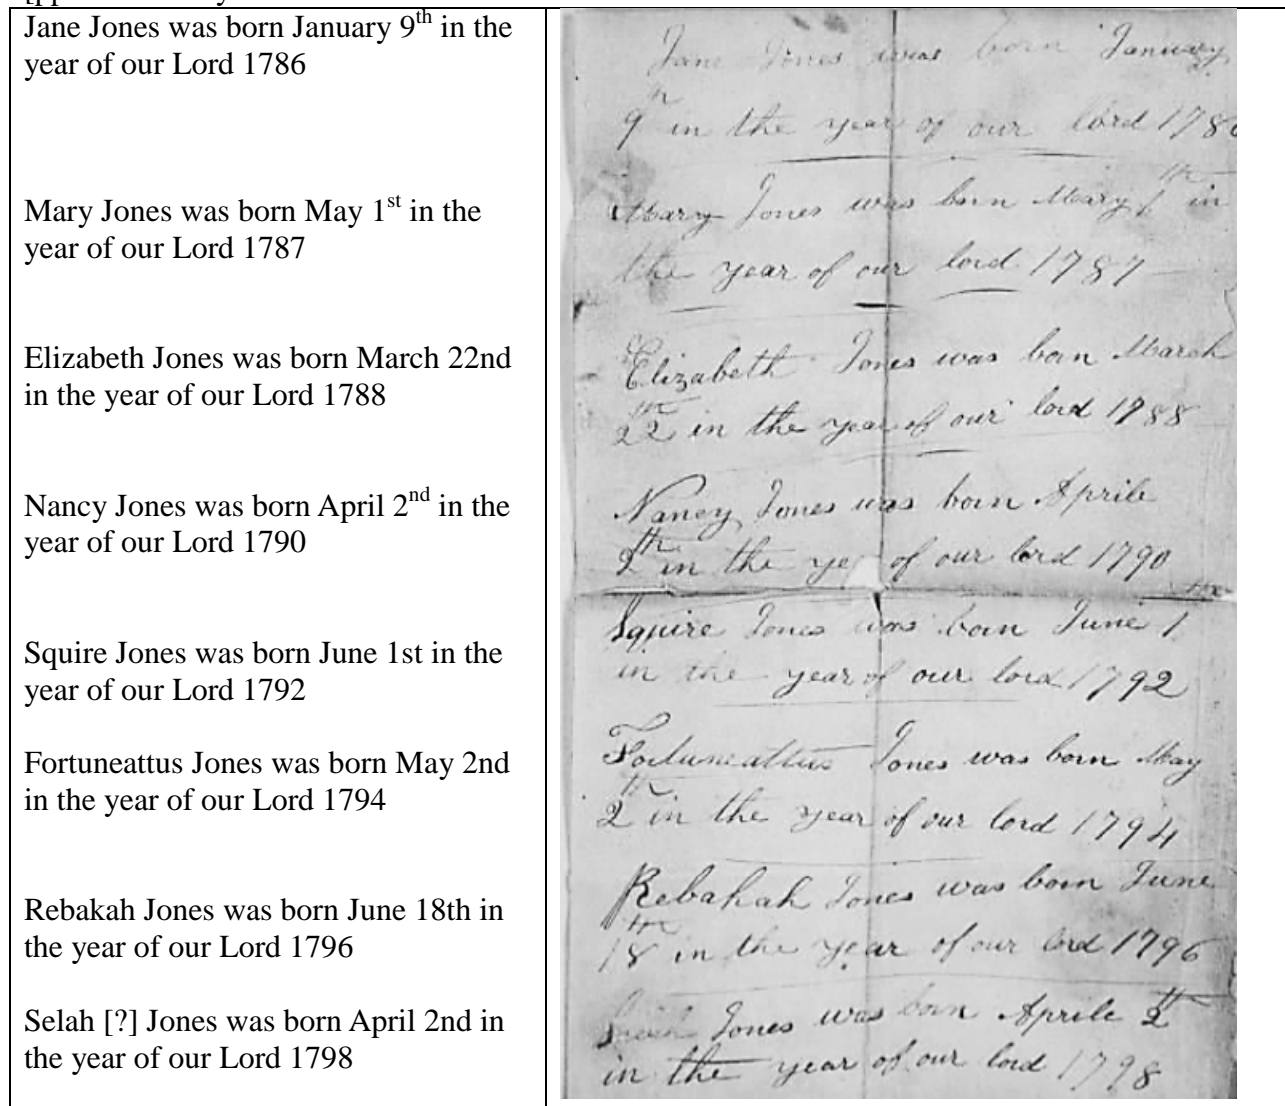 Jane Jones was born January 9th in the
year of our Lord 1786
Mary Jones was born May 1st in the
year of our Lord 1787
Elizabeth Jones was born March 22nd
in the year of our Lord 1788
Nancy Jones was born April 2nd in the
year of our Lord 1790
Squire Jones was born June 1st in the
year of our Lord 1792
Fortuneattus Jones was born May 2nd
in the year of our Lord 1794
Rebakah Jones was born June 18th in
the year of our Lord 1796
Selah [?] Jones was born April 2nd in
the year of our Lord 1798
Jane Jones was born January
9th in the year of our lord 178
Mary Jones was born Mary 1th in
the year of our lord 1787
Elizabeth Jones was born March
22th in the year of our lord 1788
Nancy Jones was born Aprile
2th in the ye of our lord 1790
Squire Jones was born June 1th
in the year of our lord 1792
Fortuneattus Jones was born May
2th in the year of our lord 1794
Rebakah Jones was born June
18th in the year of our lord 1796
Jones was born Aprile 2th
in the year of our lord 1798